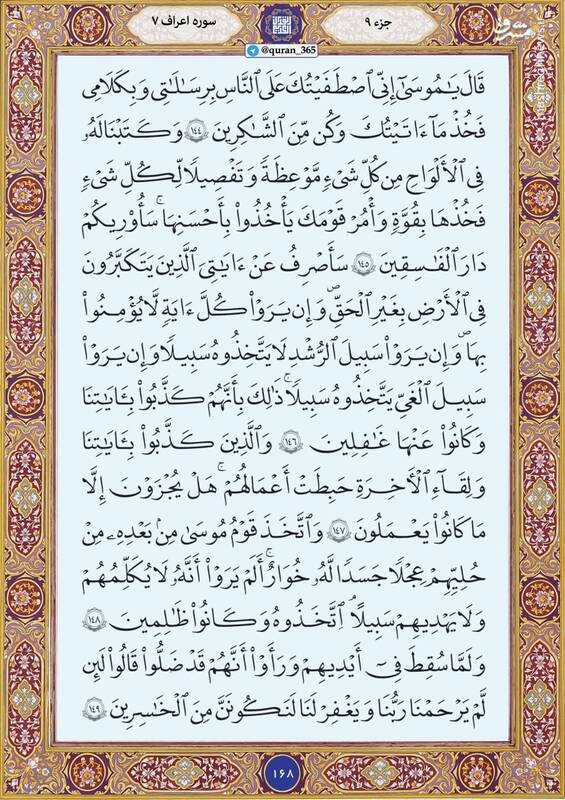 جزء ۹
سوره اعراف ۷
@quran_365
قَالَ يَـٰمُوسَىٰٓ إِنِّى ٱصْطَفَيْتُكَ عَلَى ٱلنَّاسِ بِرِسَـٰلَـٰتِى وَبِكَلَـٰمِى
فَخُذْ مَآ ءَاتَيْتُكَ وَكُن مِّنَ ٱلشَّـٰكِرِينَ ۝١٤٤ وَكَتَبْنَا لَهُۥ
فِى ٱلْأَلْوَاحِ مِن كُلِّ شَىْءٍ مَّوْعِظَةً وَتَفْصِيلًا لِّكُلِّ شَىْءٍ
فَخُذْهَا بِقُوَّةٍ وَأْمُرْ قَوْمَكَ يَأْخُذُوا۟ بِأَحْسَنِهَا ۚ سَأُو۟رِيكُمْ
دَارَ ٱلْفَـٰسِقِينَ ۝١٤٥ سَأَصْرِفُ عَنْ ءَايَـٰتِىَ ٱلَّذِينَ يَتَكَبَّرُونَ
فِى ٱلْأَرْضِ بِغَيْرِ ٱلْحَقِّ وَإِن يَرَوْا۟ كُلَّ ءَايَةٍ لَّا يُؤْمِنُوا۟
بِهَا وَإِن يَرَوْا۟ سَبِيلَ ٱلرُّشْدِ لَا يَتَّخِذُوهُ سَبِيلًا وَإِن يَرَوْا۟
سَبِيلَ ٱلْغَىِّ يَتَّخِذُوهُ سَبِيلًا ۚ ذَٰلِكَ بِأَنَّهُمْ كَذَّبُوا۟ بِـَٔايَـٰتِنَا
وَكَانُوا۟ عَنْهَا غَـٰفِلِينَ ۝١٤٦ وَٱلَّذِينَ كَذَّبُوا۟ بِـَٔايَـٰتِنَا
وَلِقَآءِ ٱلْـَٔاخِرَةِ حَبِطَتْ أَعْمَـٰلُهُمْ ۚ هَلْ يُجْزَوْنَ إِلَّا
مَا كَانُوا۟ يَعْمَلُونَ ۝١٤٧ وَٱتَّخَذَ قَوْمُ مُوسَىٰ مِنۢ بَعْدِهِۦ مِنْ
حُلِيِّهِمْ عِجْلًا جَسَدًا لَّهُۥ خُوَارٌ ۚ أَلَمْ يَرَوْا۟ أَنَّهُۥ لَا يُكَلِّمُهُمْ
وَلَا يَهْدِيهِمْ سَبِيلًا ۘ ٱتَّخَذُوهُ وَكَانُوا۟ ظَـٰلِمِينَ ۝١٤٨
وَلَمَّا سُقِطَ فِىٓ أَيْدِيهِمْ وَرَأَوْا۟ أَنَّهُمْ قَدْ ضَلُّوا۟ قَالُوا۟ لَئِن
لَّمْ يَرْحَمْنَا رَبُّنَا وَيَغْفِرْ لَنَا لَنَكُونَنَّ مِنَ ٱلْخَـٰسِرِينَ ۝١٤٩
۱۶۸